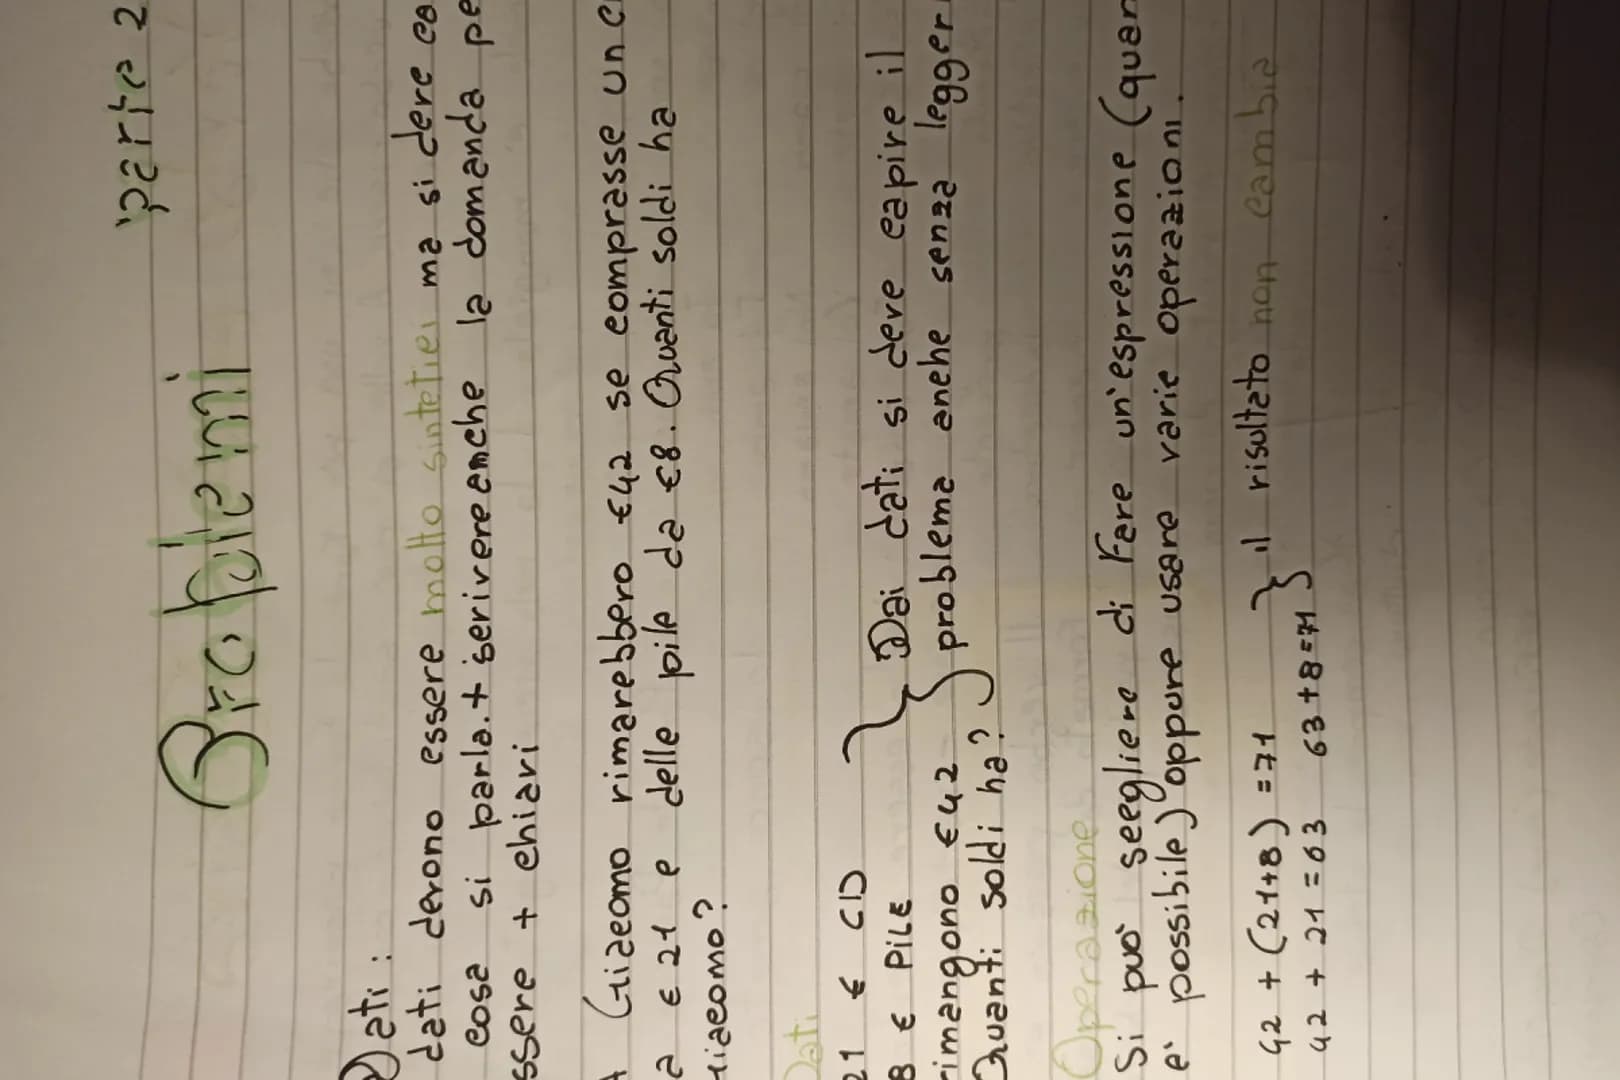 Problemi parte 2
Dati:
dati devono essere molto sintetici ma si deve
cosa si parla. + scrivere anche la domanda pe
ssere + chiari
A Giacomo rimarebbero €42 se comprasse un c
a € 21 e delle pile da €8. Quanti soldi ha
Giacomo?
Dati
21 € CD
8 € PILE
rimangono €42
Quanti soldi ha?
Dai dati si deve capire il
problema anche senza legger
Operazione
Si può scegliere di fare un'espressione (quan
è possibile) oppure usare varie operazioni.
42 + (21+8) =71
42 + 21 = 63 63+8=71
il risultato non cambia